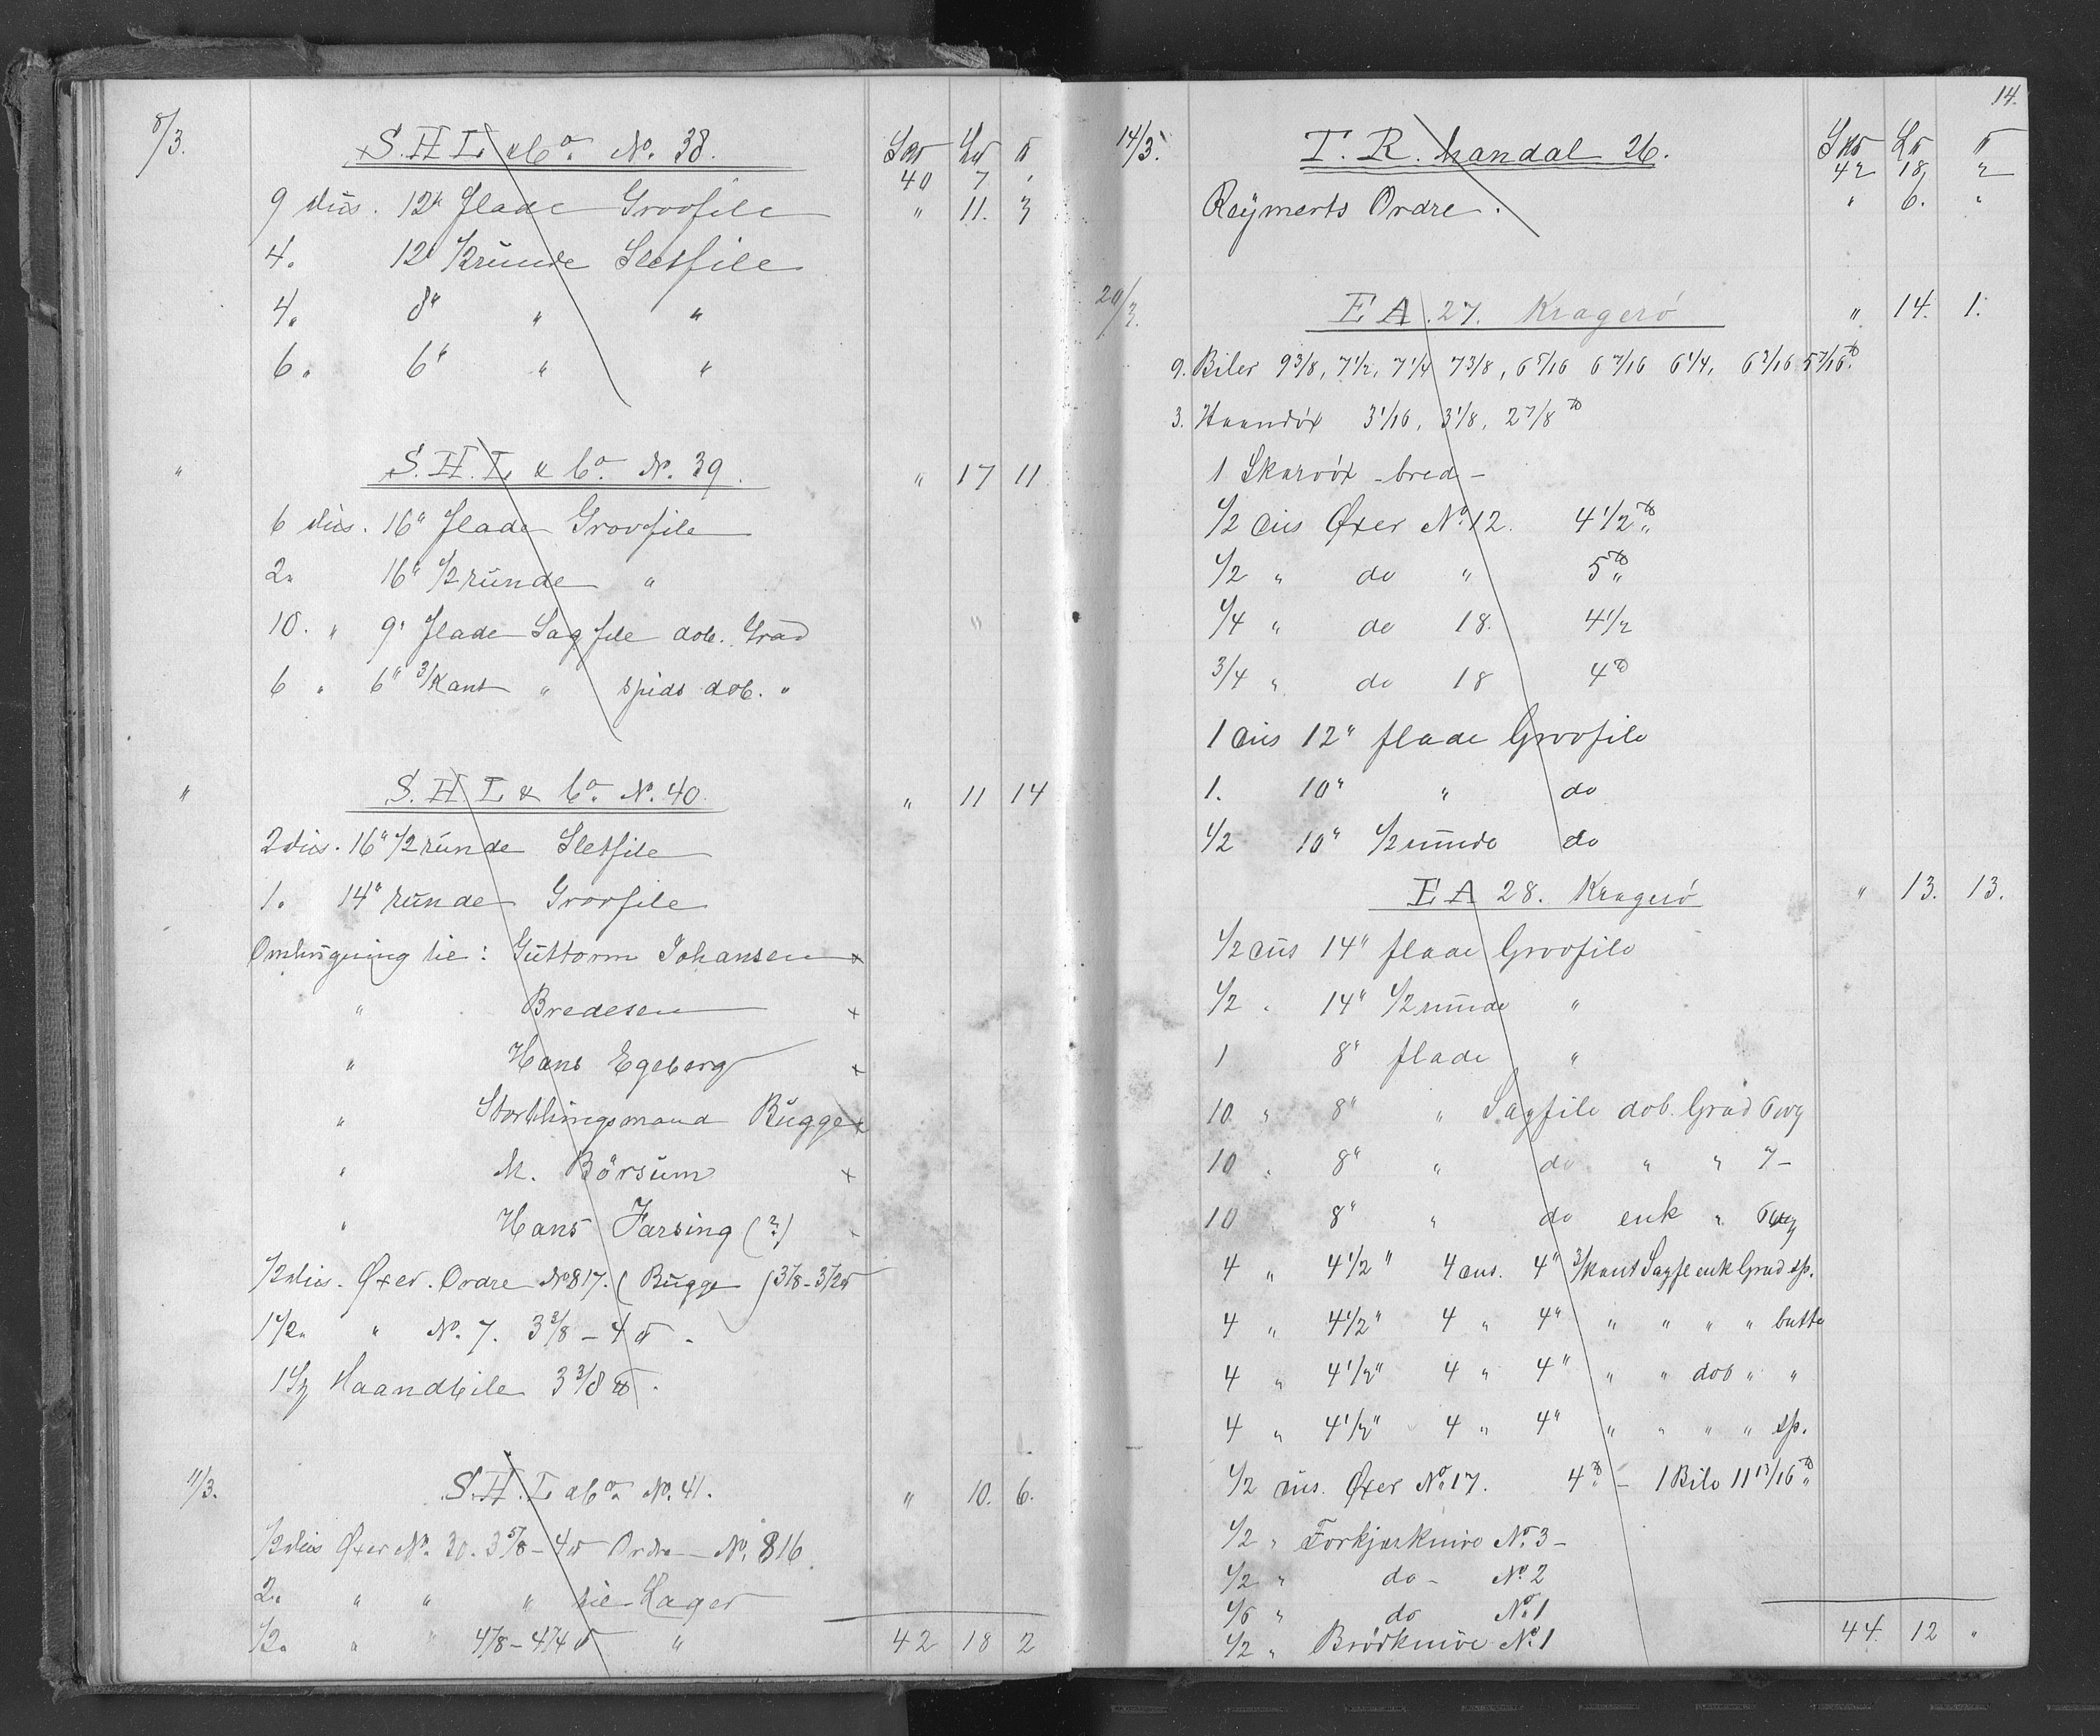 8/3. S. H. L. & Co. No. 38. 40 7 "
9 dus. 12" flade Groofile " 11. 3
4. 12" 1/2 runde Sletfile
4. 8" " "
6. 6" " "
" S. H. L. & Co. No. 39. " 17 11
6 dus. 16" flade Groofile
2. 16" 1/2 runde "
10. " 9" flade Sagfile dob. Grad
6 " 6" 3/kant " spids dob. "
" S. H. L. & Co. No. 40. " 11 14
2 dus. 16" 1/2 runde Sletfile
1. 14" runde Groofile
Ombugning til: Guttorm Johansen x
" Bredesen x
" Hans Egeberg x
" Storthingsmand Bugge x
" M. Börsum x
" Hans Farsing (?)
1/2 dus. Øxer. Ordre No 817. (Bugge) 3 1/8 - 3 1/2 ℔
1 1/2 " " No. 7. 3 3/8 - 4 ℔.
1 Haandbile 3 3/8 ℔.
11/3. S. H. L. & Co. No. 41. " 10. 6.
1/2 dus Øxer No. 30. 3 5/8 - 4 ℔ Ordre No. 816.
2. " " " til Lager
1/2. " " 4 1/8 - 4 1/4 ℔ "
42 18 2
14.
14/3. T. R. Mandal 26. 42 18, 2
Reymerts Ordre. " 6. "
20/3. E A. 27. Kragerö " 14. 1.
9. Biler 9 3/8, 7 1/2, 7 1/4 7 3/8, 6 5/16 6 7/16 6 1/4, 6 3/16 5 7/16 ℔.
3. Haandöx 3 1/16, 3 1/8, 2 7/8 ℔
1 Skarvöx - bred -
1/2 dus Øxer No. 12. 4 1/2 ℔
1/2 " do " 5 ℔
1/4 " do 18. 4 1/2
3/4 " do 18 4 ℔
1 dus 12" flade Groofile
1. 10" " do
1/2 10" 1/2 runde do
E A 28. Kragerö " 13. 13.
1/2 dus 14" flade Groofile
1/2 " 14" 1/2 runde "
1 8" flade "
10 " 8" " Sagfile dob. Grad
10 " 8" " do " " 7 -
10 " 8" " do enk "
4 " 4 1/2" 4 dus. 4" 3/kant Sagfl enk Grad sp.
4 " 4 1/2" 4 " 4" " " " " butte
4 " 4 1/2" 4 " 4" " " dob " "
4 " 4 1/2" 4 " 4" " " " " sp.
1/2 dus. Øxer No. 17. 4 ℔ - 1 Bile 11 13/16 ℔
1/2 " Forkjærknive No. 3 -
1/2 " do - No. 2
1/6 " do No. 1
1/2 " Brödknive No. 1
44. 12 "